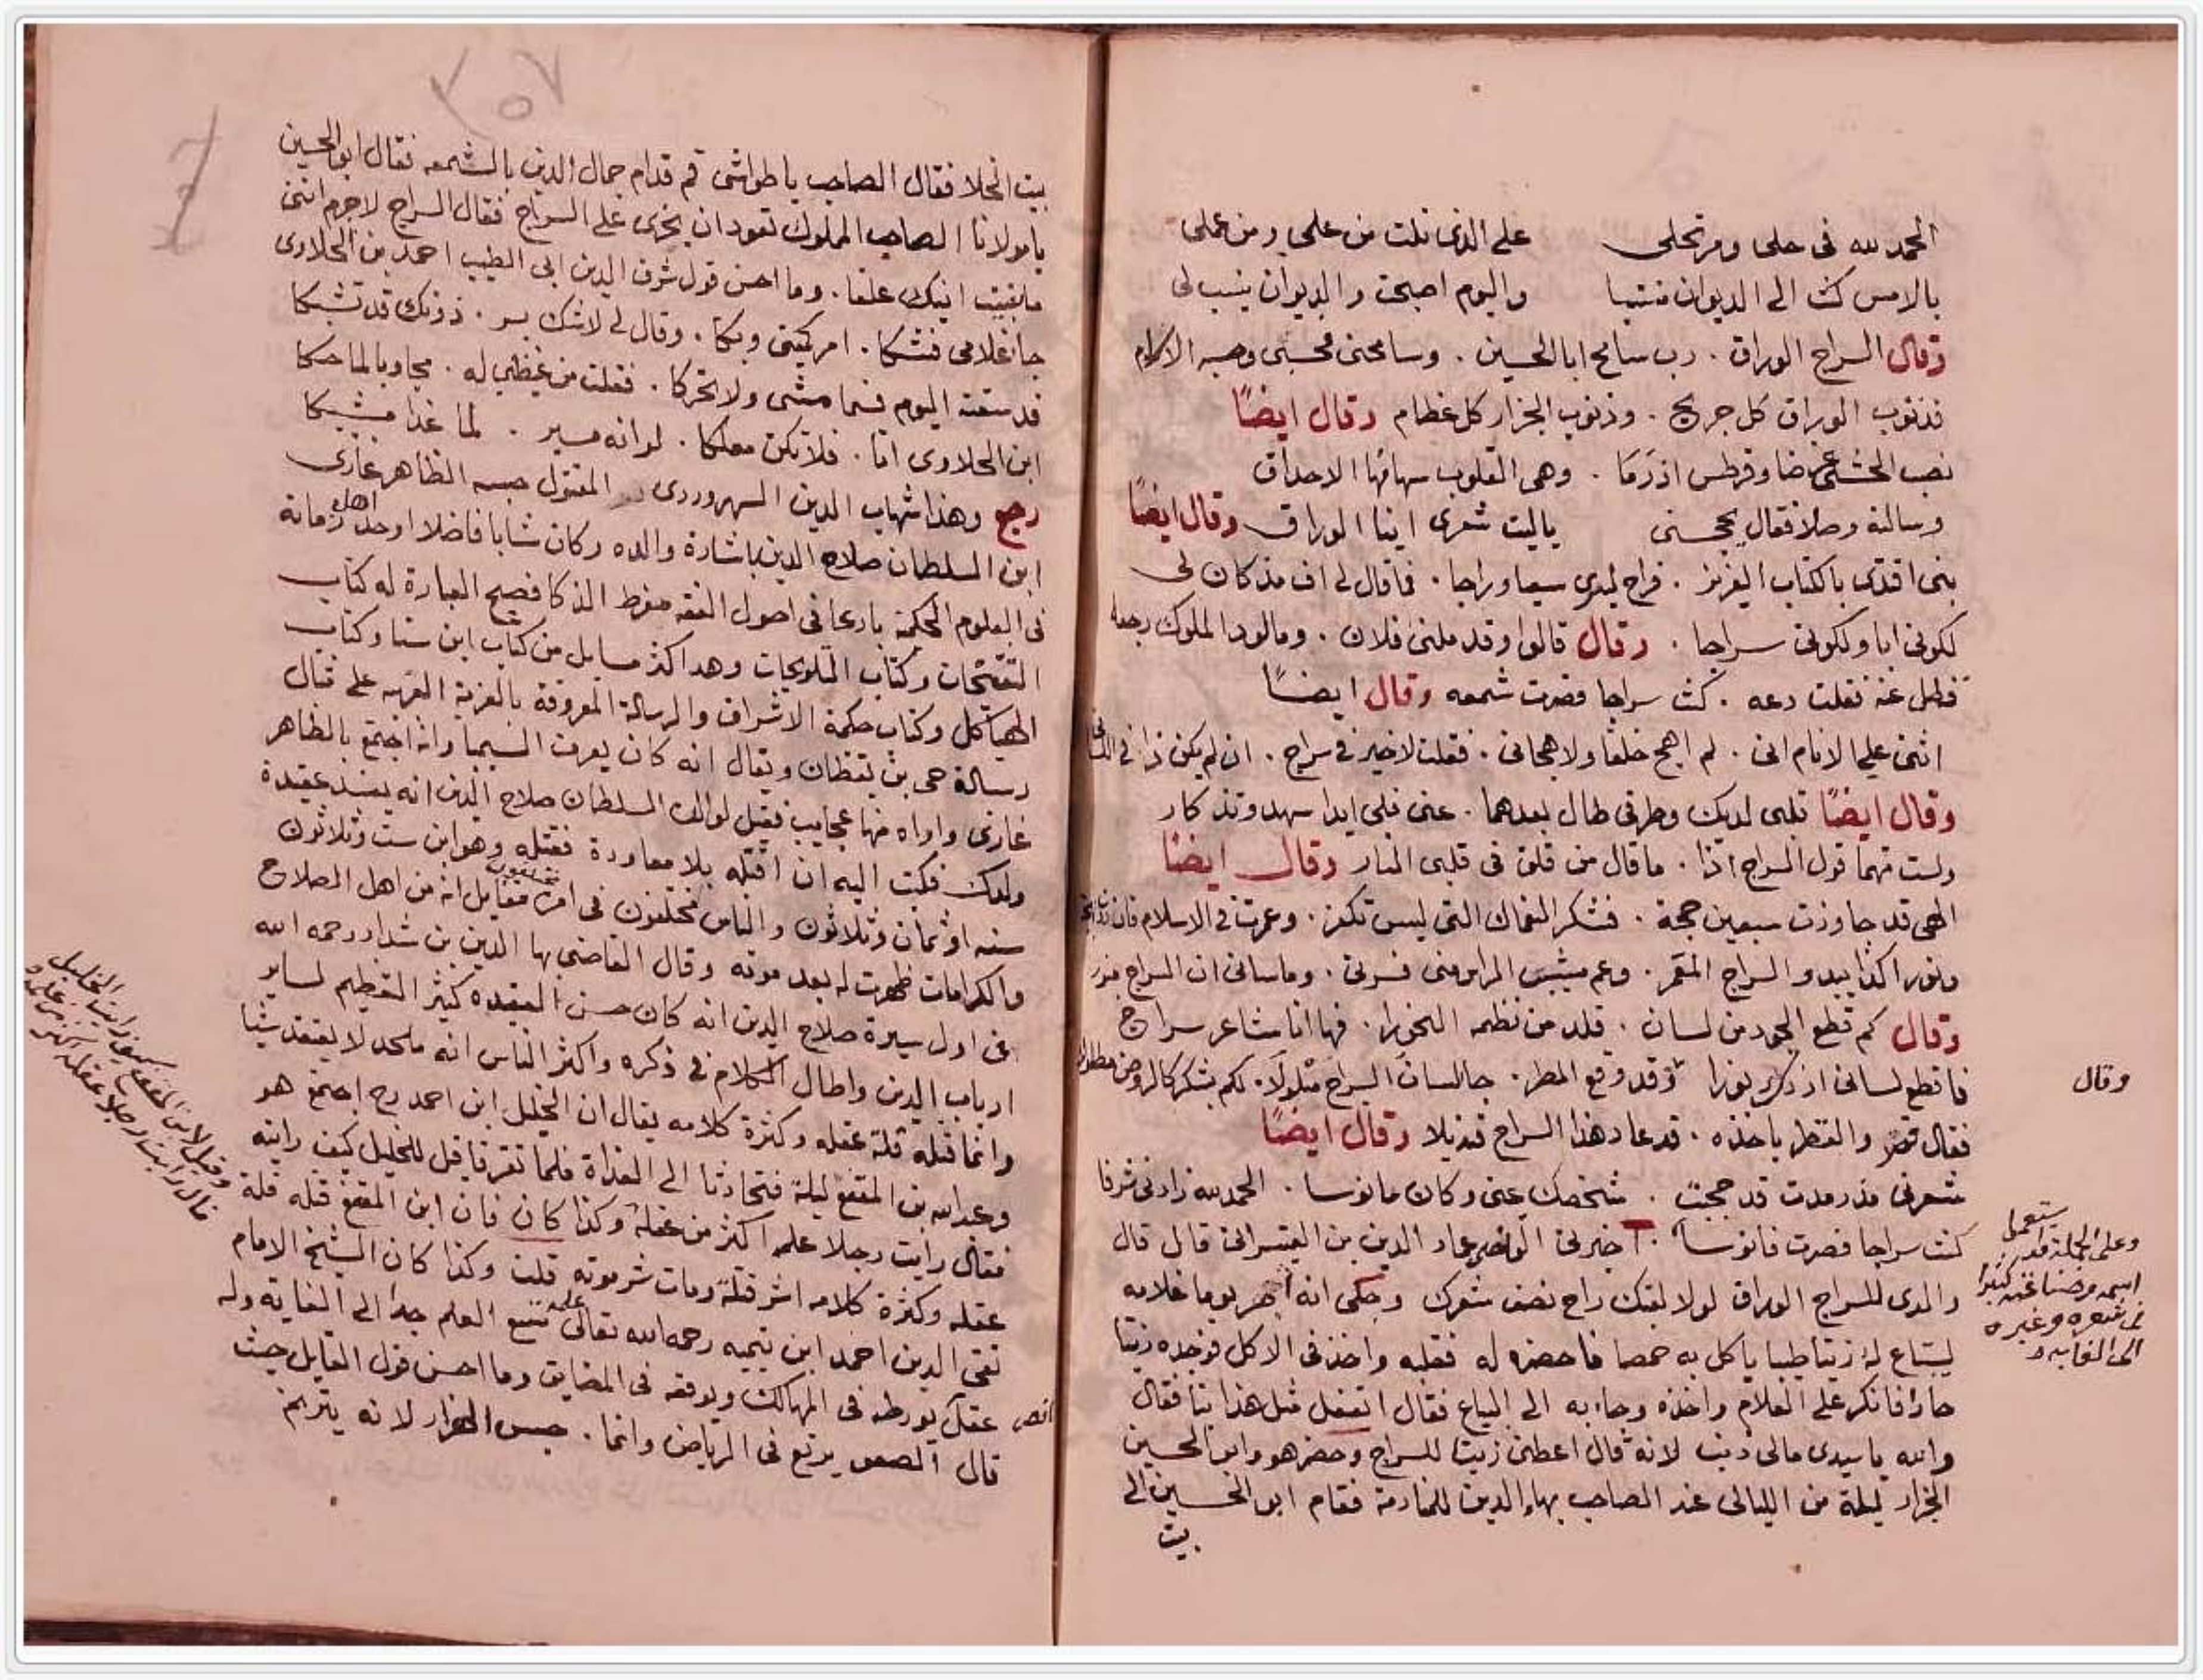 الحمد لله فى حلى ومرتحلى على الذى نلت من علمى ومن عملى
بالامس كنت الى الديوان منتسبا واليوم اصبحت والديوان ينسب لى
وقال السراج الوراق . رب سامح ابا الحسين . وسامحنى فحسبى وحسبه الاكرام
فذنوب الوراق كل جريح . وذنوب الجزار كل عظام وقال ايضًا
نصب الحشى غرضا وقرطس اذ رما . وهى القلوب سهامها الاحداق
وسالته وصلا فقال يحجسنى ياليت شعرى اينا الوراق وقال ايضًا
بنى اقتدى بالكتاب العزيز . فراح لبرى سعيا وراجا . فما قال لى اف مذ كان لى
لكونى ابا ولكونى سراجا . وقال قالوا وقد ملنى فلان . وما لود الملوك رجعه
فطل عنه فقلت دعه . كنت سراجا فصرت شمعه وقال ايضًا
اثنى على الانام انى . لم اهج خلقا ولا هجانى . فقلت لا خير فى سراج . ان لم يكن ذا فى
وقال ايضًا قلبى لديك وطرفى طال بعدهما . عنى فلى ابدا سهد وتذكار
ولست متهما قول السراج اذا . ما قال من قلق فى قلبى النار وقال ايضًا
الهى قد جاوزت سبعين حجة . فشكر النعماك التى ليس تكفر . وعمرت فى الاسلام فازددت
ونورا كذا يبدو السراج المعمر . وعم مشيب الراس منى فسرنى . وما سانى ان السراج منور
وقال كم قطع الجود من لسان . قلد من نظمه النحورا . فها انا شاعر سراج
فاقطع لسانى ازدك نورا وقد وقع المطر . جا لسان السراج مبلولا . لكم بشكر كالروض مطلول
فقال قصر والقطر ياخذه . قد عاد هذا السراج قنديلا وقال ايضًا
شعرنى مذ رمدت قد حجبت . شخصك عنى وكان مانوسا . الحمد لله زادنى شرفا
كنت سراجا فصرت فانوسا . اخبرنى القاضى عماد الدين بن القيسرانى قال قال
والدى للسراج الوراق لولا لقبك راح نصف شعرك وحكى انه جهز يوما غلامه
ليبتاع له زيتا طيبا ياكل به حمصا فاحضره له فقلبه واخذ فى الاكل فوجده زيتا
حارا فانكر على الغلام واخذه وجاء به الى البياع فقال اتفعل مثل هذا بنا فقال
والله يا سيدى مالى ذنب لانه قال اعطنى زيتا للسراج وحضر هو وابو الحسين
الجزار ليلة من الليالى عند الصاحب بهاء الدين للمنادمة فقام ابو الحسين الى
بيت
وقال
وعلى الجملة فقد استعمل
اسمه وصناعته كثيرا
فى شعره وغيره
الى الغايه
٢٥٧
بيت الخلا فقال الصاحب يا طواشى قم قدام جمال الدين بالشمعه فقال ابو الحسين
يا مولانا الصاحب المملوك تعود ان يخرى على السراج فقال السراج لا جرم اننى
مابقيت انيك علقا . وما احسن قول شرف الدين ابى الطيب احمد بن الحلاوى
جا غلامى فشكا . امر كميتى وبكا . وقال لى لا شك بر . ذونك قد تشبكا
قد سقته اليوم فما مشى ولا تحركا . فقلت من غيظى له . مجاوبا لما حكا
ابن الحلاوى انا . فلا تكن معلكا . لو انه مسير . لما غدا مشبكا
رجع وهذا شهاب الدين السهروردى المقتول حبسه الظاهر غازى
ابن السلطان صلاح الدين باشارة والده وكان شابا فاضلا اوحد اهل زمانه
فى العلوم الحكمية بارعا فى اصول الفقه مفرط الذكا فصيح العبارة له كتاب
التنقيحات وكتاب التلويحات وهذا اكثر مسايل من كتاب ابن سنا وكتاب
الهياكل وكتاب حكمة الاشراق والرسالة المعروفة بالغربة الغربيه على مثال
رسالة حى بن يقظان ويقال انه كان يعرف السيميا وانه اجتمع بالظاهر
غازى واراه منها عجايب فقيل لوالده السلطان صلاح الدين انه يفسد عقيدة
ولدك فكتب اليه ان اقتله بلا معاودة فقتله وهو ابن ست وثلاثون
سنه او ثمان وثلاثون والناس مختلفون فى امره فقايل انه من اهل الصلاح
والكرامات ظهرت له بعد موته وقال القاضى بها الدين بن شداد رحمه الله
فى اول سيرة صلاح الدين انه كان حسن العقيده كثير التعظيم لساير
ارباب الدين واطال الكلام فى ذكره واكثر الناس انه ملحد لا يعتقد شيئا
وانما قتله قلة عقله وكثرة كلامه يقال ان الخليل ابن احمد رح اجتمع هو
وعبد الله بن المقفع ليلة فتحادثا الى الغداة فلما تفرقا قيل للخليل كيف رايته
فقال رايت رجلا علمه اكثر من عقله وكذا كان فان ابن المقفع قتله قلة
عقله وكثرة كلامه اشر قتلة ومات شر موته قلت وكذا كان الشيخ الامام
تقى الدين احمد ابن تيميه رحمه الله تعالى علمه متسع العلم جدا الى الغاية وله
عقل يورطه فى المهالك ويوقعه فى المضايق وما احسن قول القايل حيث
قال الصعو يرتع فى الرياض وانما . حبس الهزار لانه يترنم
ناقص
وقيل لابن المقفع كيف رايت الخليل
قال رايت رجلا عقله اكثر من علمه